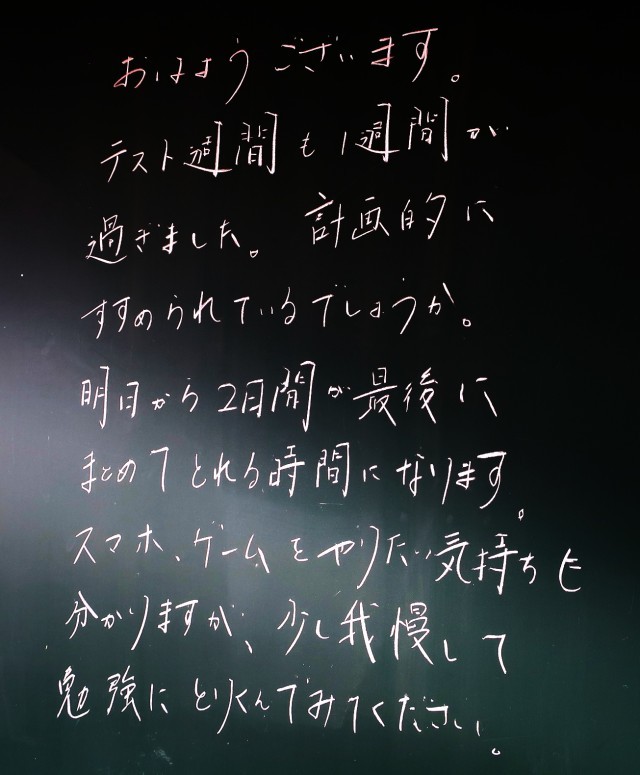 おはようございます。
テスト週間も1週間が
過ぎました。計画的に
すすめられているでしょうか。
明日から2日間が最後に
まとめてとれる時間になります。
スマホ、ゲームをやりたい気持ちも
分かりますが、少し我慢して
勉強にとりくんでみてください。